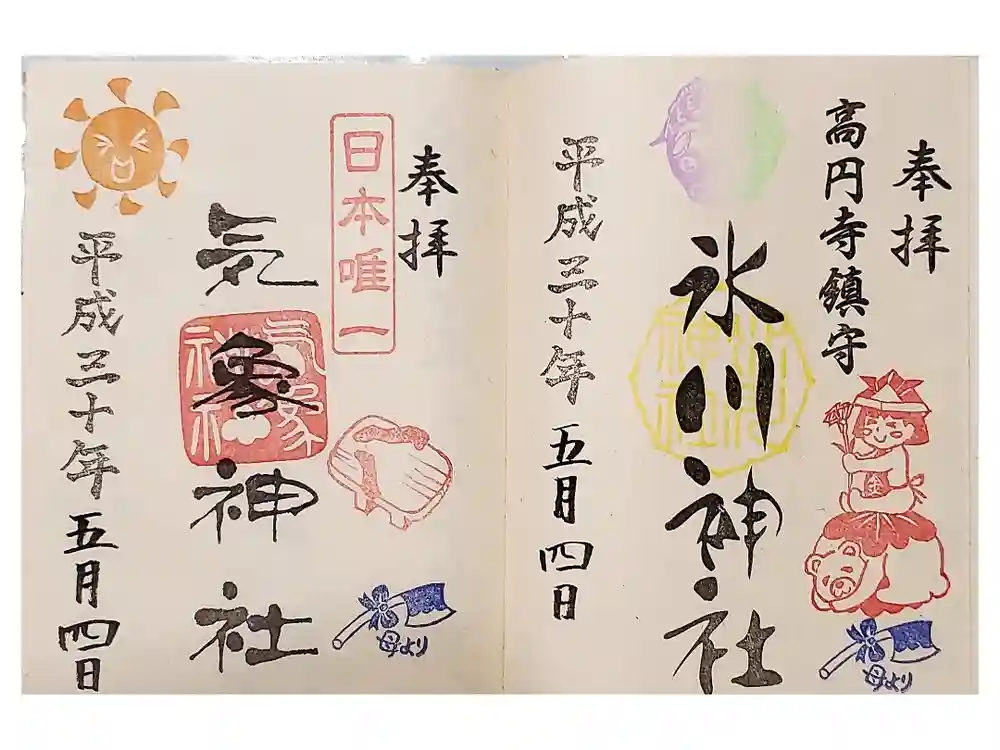 奉拝
高円寺鎮守
金
氷川神社
氷川神社
平成三十年五月四日
母より
奉拝
日本唯一
気象神社
気象神社
平成三十年五月四日
母より